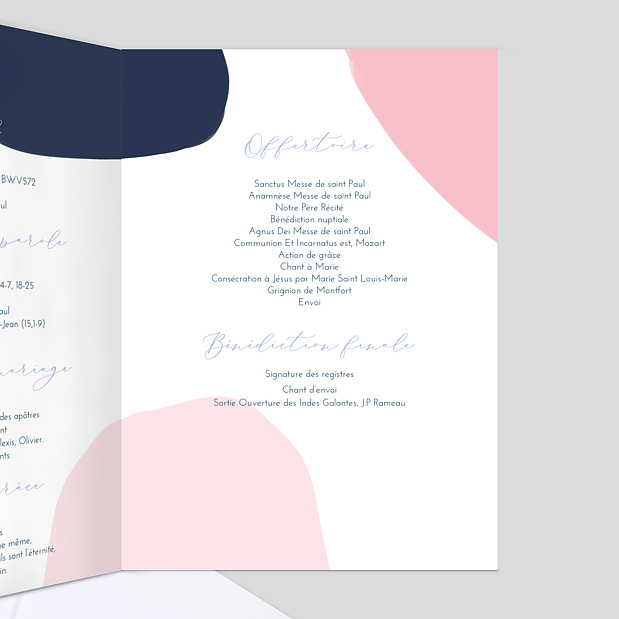 BWV572
4-7, 18-25
-Jean (15,1-9)
des apôtres
Olivier.
ne même,
ils sont l'éternité,
Offertoire
Sanctus Messe de saint Paul
Anamnèse Messe de saint Paul
Notre Père Récité
Bénédiction nuptiale
Agnus Dei Messe de saint Paul
Communion Et Incarnatus est, Mozart
Action de grâce
Chant à Marie
Consécration à Jésus par Marie Saint Louis-Marie
Grignion de Montfort
Envoi
Bénédiction finale
Signature des registres
Chant d'envoi
Sortie Ouverture des Indes Galantes, J.P Rameau